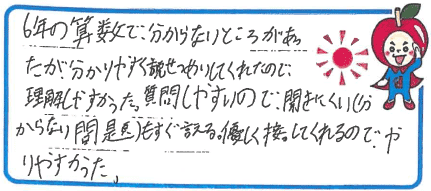 6年の算数で分からないところがあっ
たが分かりやすく説明してくれたので、
理解しやすかった。質問しやすいので、聞きにくい(分
からない問題)もすぐ言える。優しく接してくれるのでや
りやすかった。